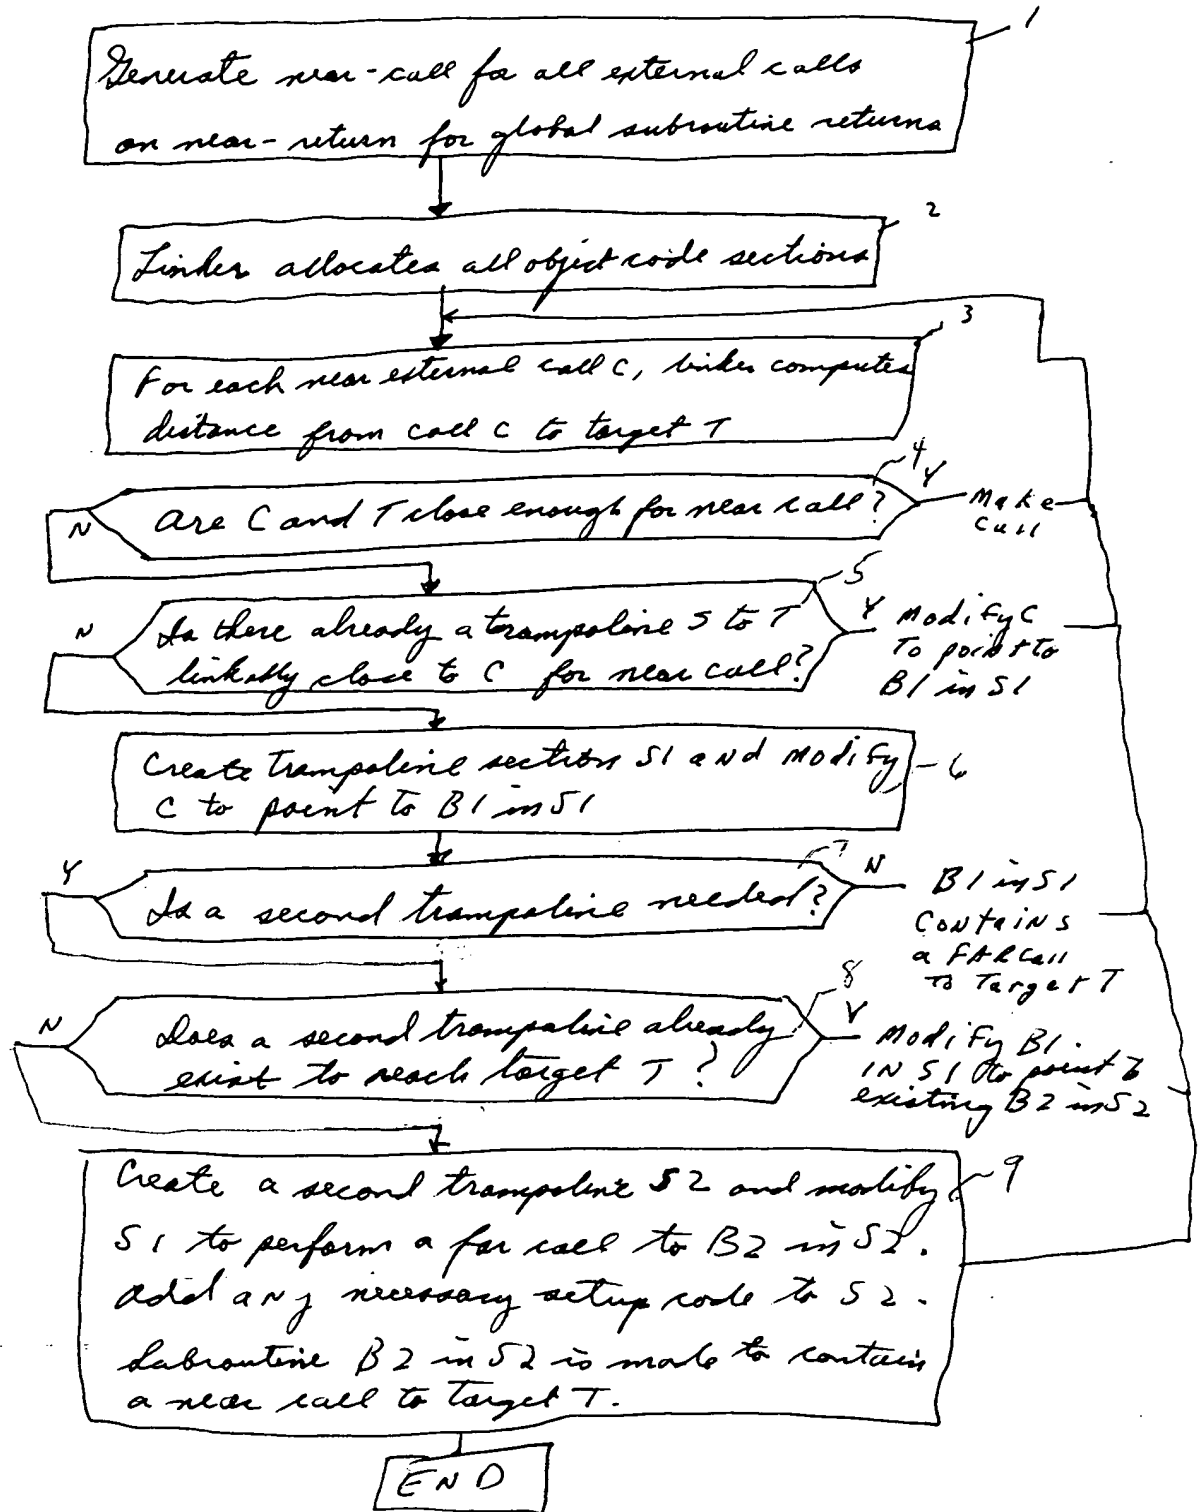 1
Generate near-call for all external calls
on near-return for global subroutine returns
2
Linker allocates all object code sections
3
For each near external call C, linker computes
distance from call C to target T
4
Are C and T close enough for near call?
Y
Make
Call
N
5
Is there already a trampoline S to T
linkably close to C for near call?
Y
Modify C
To point to
B1 in S1
N
6
Create trampoline section S1 and modify
C to point to B1 in S1
7
Is a second trampoline needed?
N
B1 in S1
Contains
a FAR Call
To Target T
Y
8
Does a second trampoline already
exist to reach target T?
Y
Modify B1
IN S1 to point to
existing B2 in S2
N
9
Create a second trampoline S2 and modify
S1 to perform a far call to B2 in S2.
Add any necessary setup code to S2.
Subroutine B2 in S2 is made to contain
a near call to target T.
END